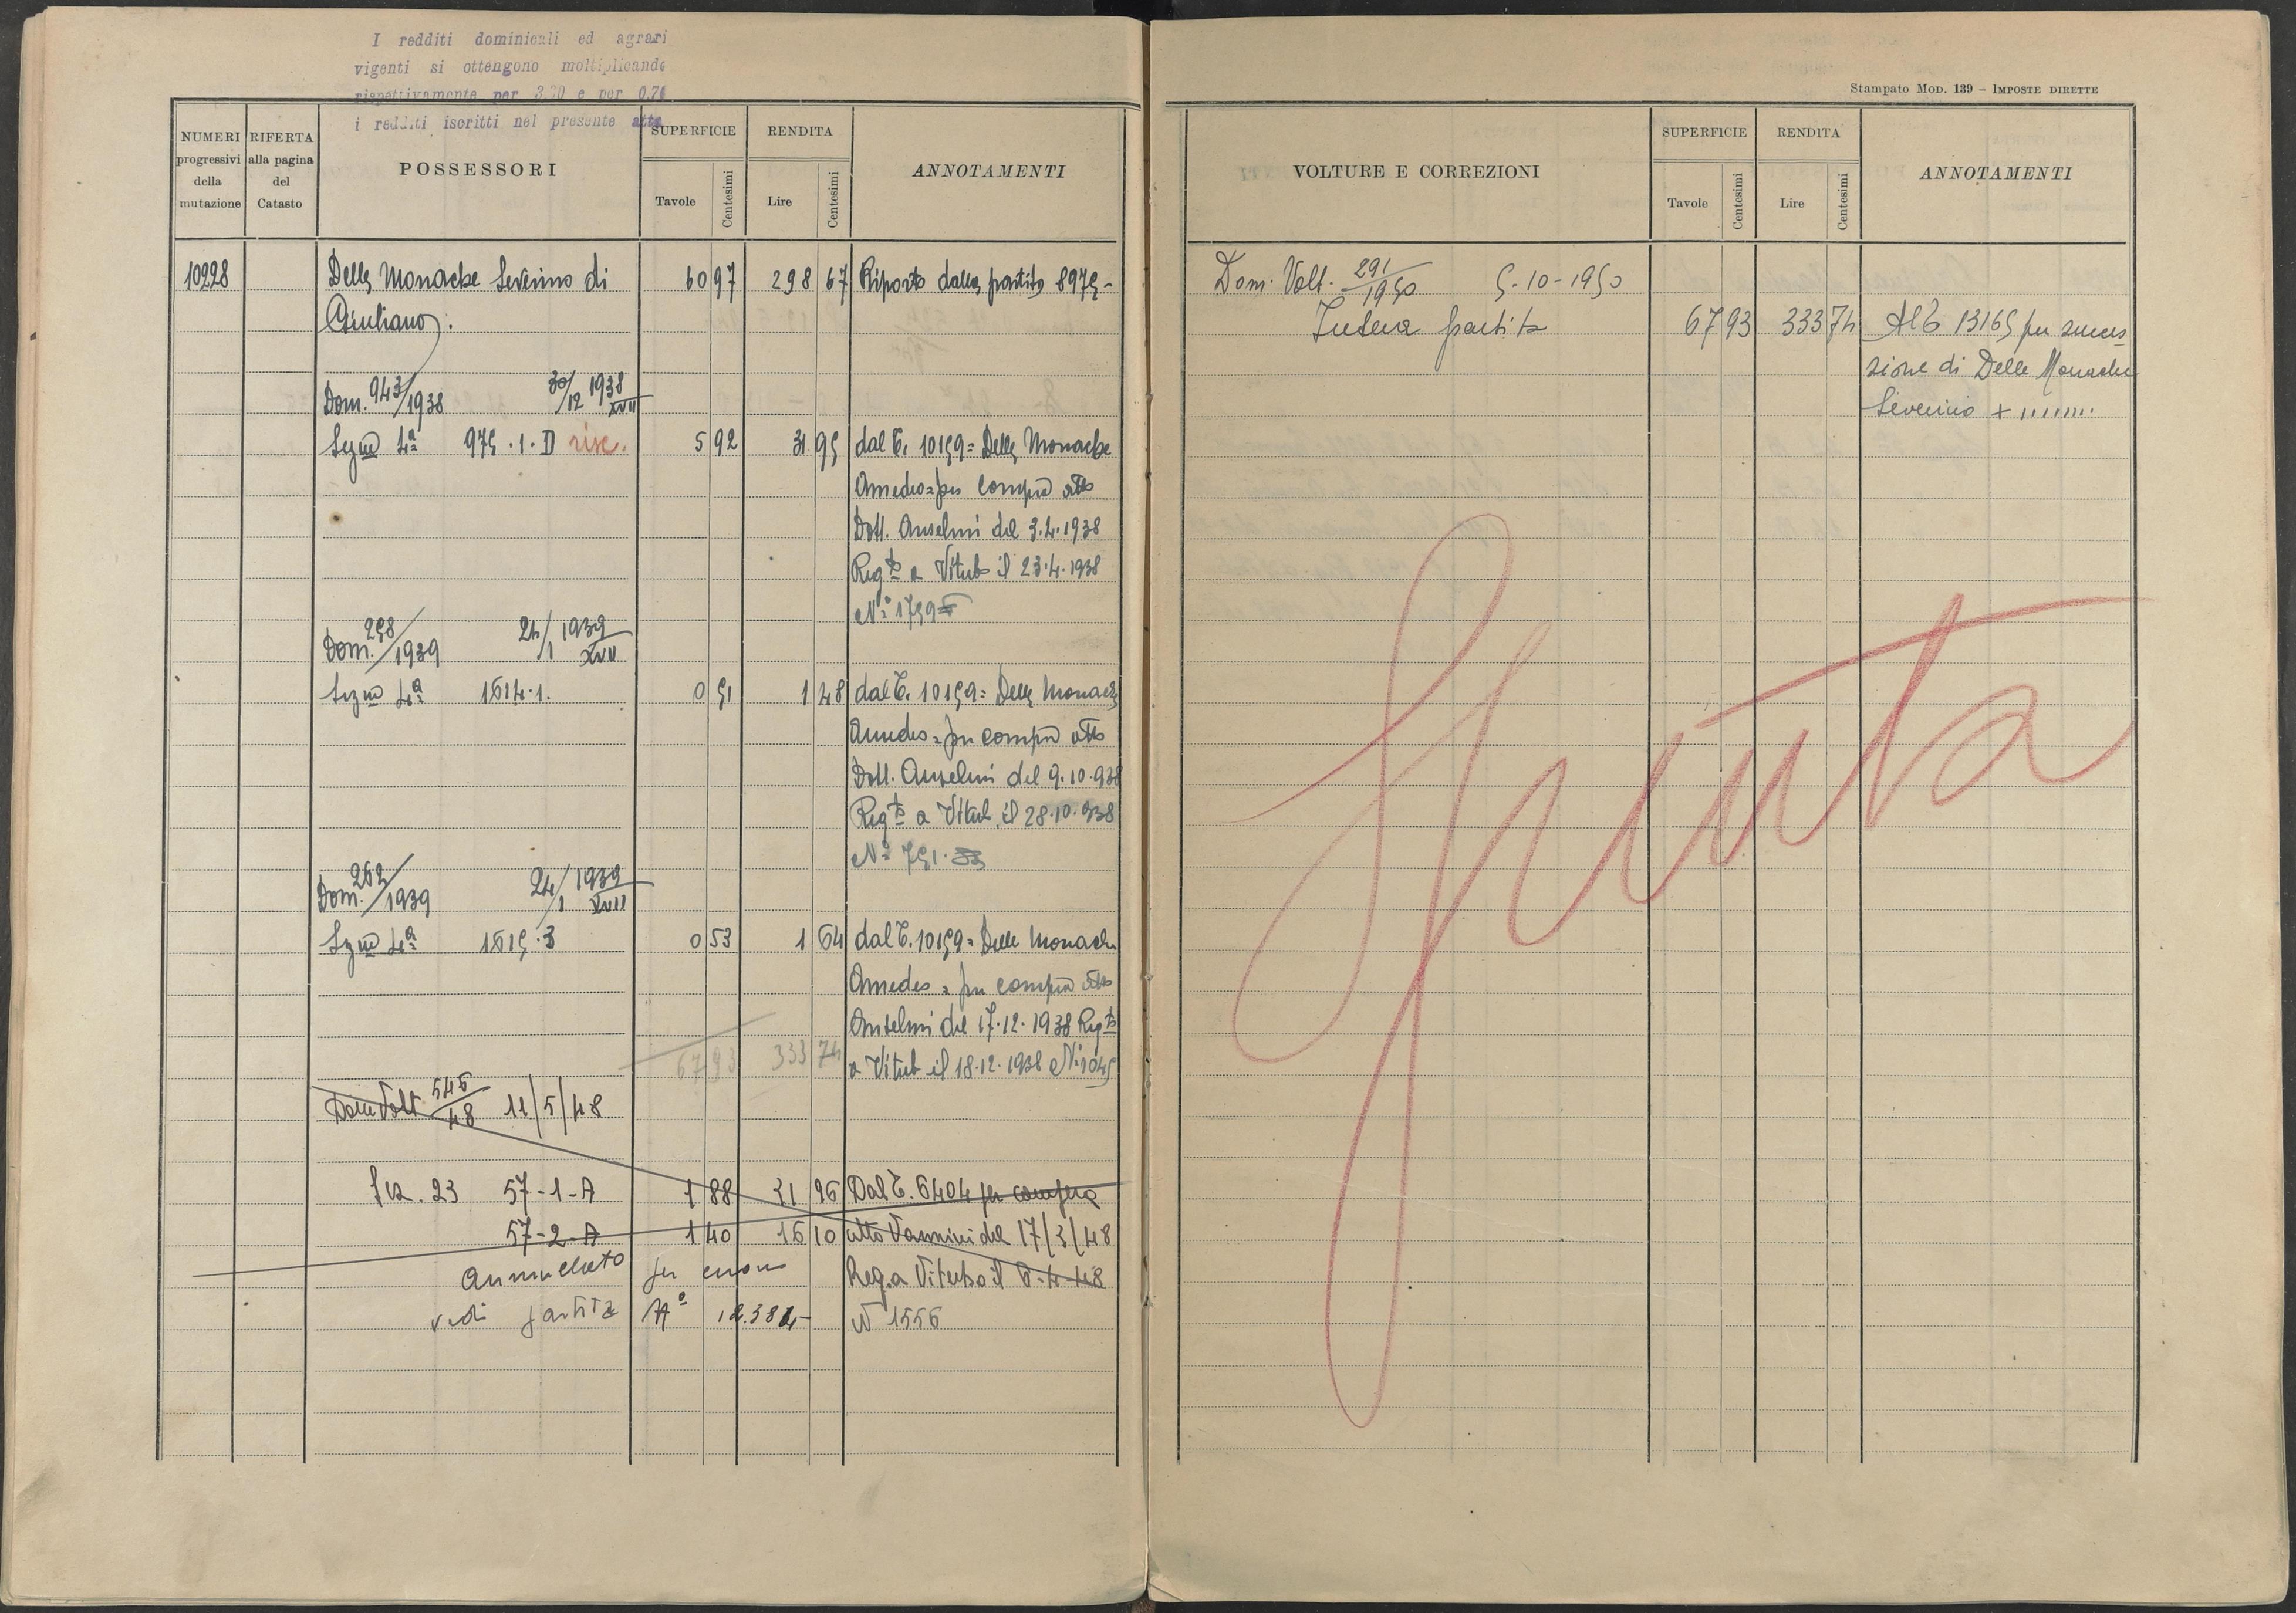 I redditi dominicali ed agrari
vigenti si ottengono moltiplicando
rispettivamente per 3,20 e per 0,70
i redditi iscritti nel presente atto
NUMERI progressivi della mutazione
RIFERTA alla pagina del Catasto
POSSESSORI
SUPERFICIE
Tavole Centesimi
RENDITA
Lire Centesimi
ANNOTAMENTI
10228 Delle Monache Severino di 60 97 298 67 Riporto dalla partita 8975-
Giuliano.
Dom. 943/1938 30/12 1938 XVII
Sezne 4ª 975.1.D risc. 5 92 31 95 dal C. 10159= Delle Monache
Amedeo= per compra atto
Dott. Anselmi del 3.4.1938
Regto a Viterbo il 23.4.1938
N° 1759
Dom. 258/1939 24/1 1939 XVII
Sezne 4ª 1614.1. 0 51 1 48 dal C. 10159= Delle Monache
Amedeo= per compra atto
Dott. Anselmi del 9.10.938
Regto a Viterb. il 28.10.938
N° 751.
Dom. 262/1939 24/1 1939 XVII
Sezne 4ª 1615.3 0 53 1 64 dal C. 10159= Delle Monache
Amedeo = per compra atto
Anselmi del 17.12.1938 Regto
67 93 333 74 a Viterb il 18.12.1938 N° 1045
Dom Volt 546/48 11/5/48
Sez. 23 57-1-A 1 88 31 96 Dal C. 6404 per compera
57-2-A 1 40 16 10 atto Vannini del 17/3/48
Annullato per errore Reg. a Viterbo il 8-4-48
vedi partita N° 12.384- N 1556
Stampato Mod. 139 – Imposte dirette
VOLTURE E CORREZIONI
SUPERFICIE
Tavole Centesimi
RENDITA
Lire Centesimi
ANNOTAMENTI
Dom. Volt. 291/1950 5-10-1950
Intera partita 67 93 333 74 Al C 13165 per succes
sione di Delle Monache
Severino +